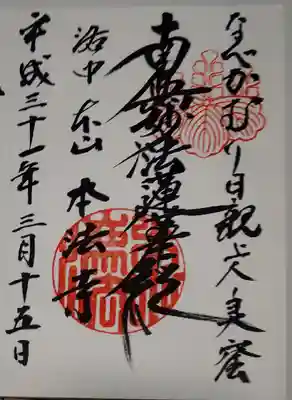 なべかむり日親上人奥蜜
南無妙法蓮華経
洛中 本山 本法寺
平成三十一年三月十五日